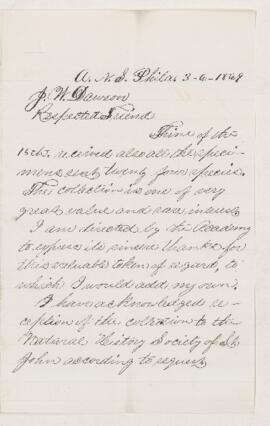 A. N. S. Phila. 3-6-1869
J. W. Dawson
Respected Friend
Thine of the
15th. recived also all the speci-
mens sent twenty four species.
This collection is one of very
great value and rare interest
I am directed by the Academy
to express its sincere thanks for
this valuable token of regard, to
which I would add my own.
I have acknowledged re-
ception of the collection to the
Natural History Society of St
John according to request